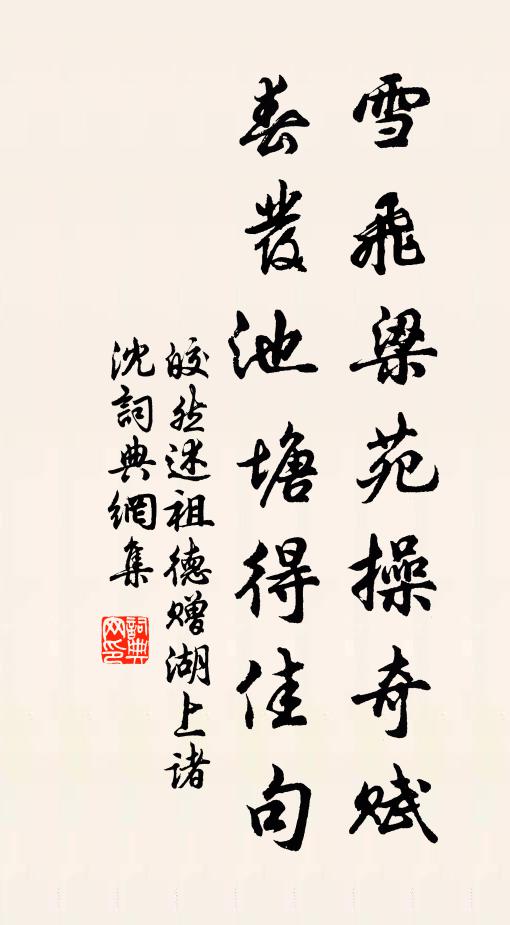 雪飛梁苑操奇賦
春發池塘得佳句
皎然述祖德贈湖上諸
沈詞典網集
詞典網印